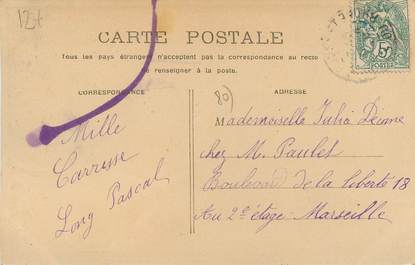 12f
CARTE POSTALE
Tous les pays étrangers n'acceptent pas la correspondance au recto
se renseigner à la poste.
CORRESPONDANCE
ADRESSE
80)
Mille
Carresse
Long Pascal
Mademoiselle Julia
chez M. Paulet
Boulevard de la liberté 18
Au 2e étage Marseille
POSTES
5